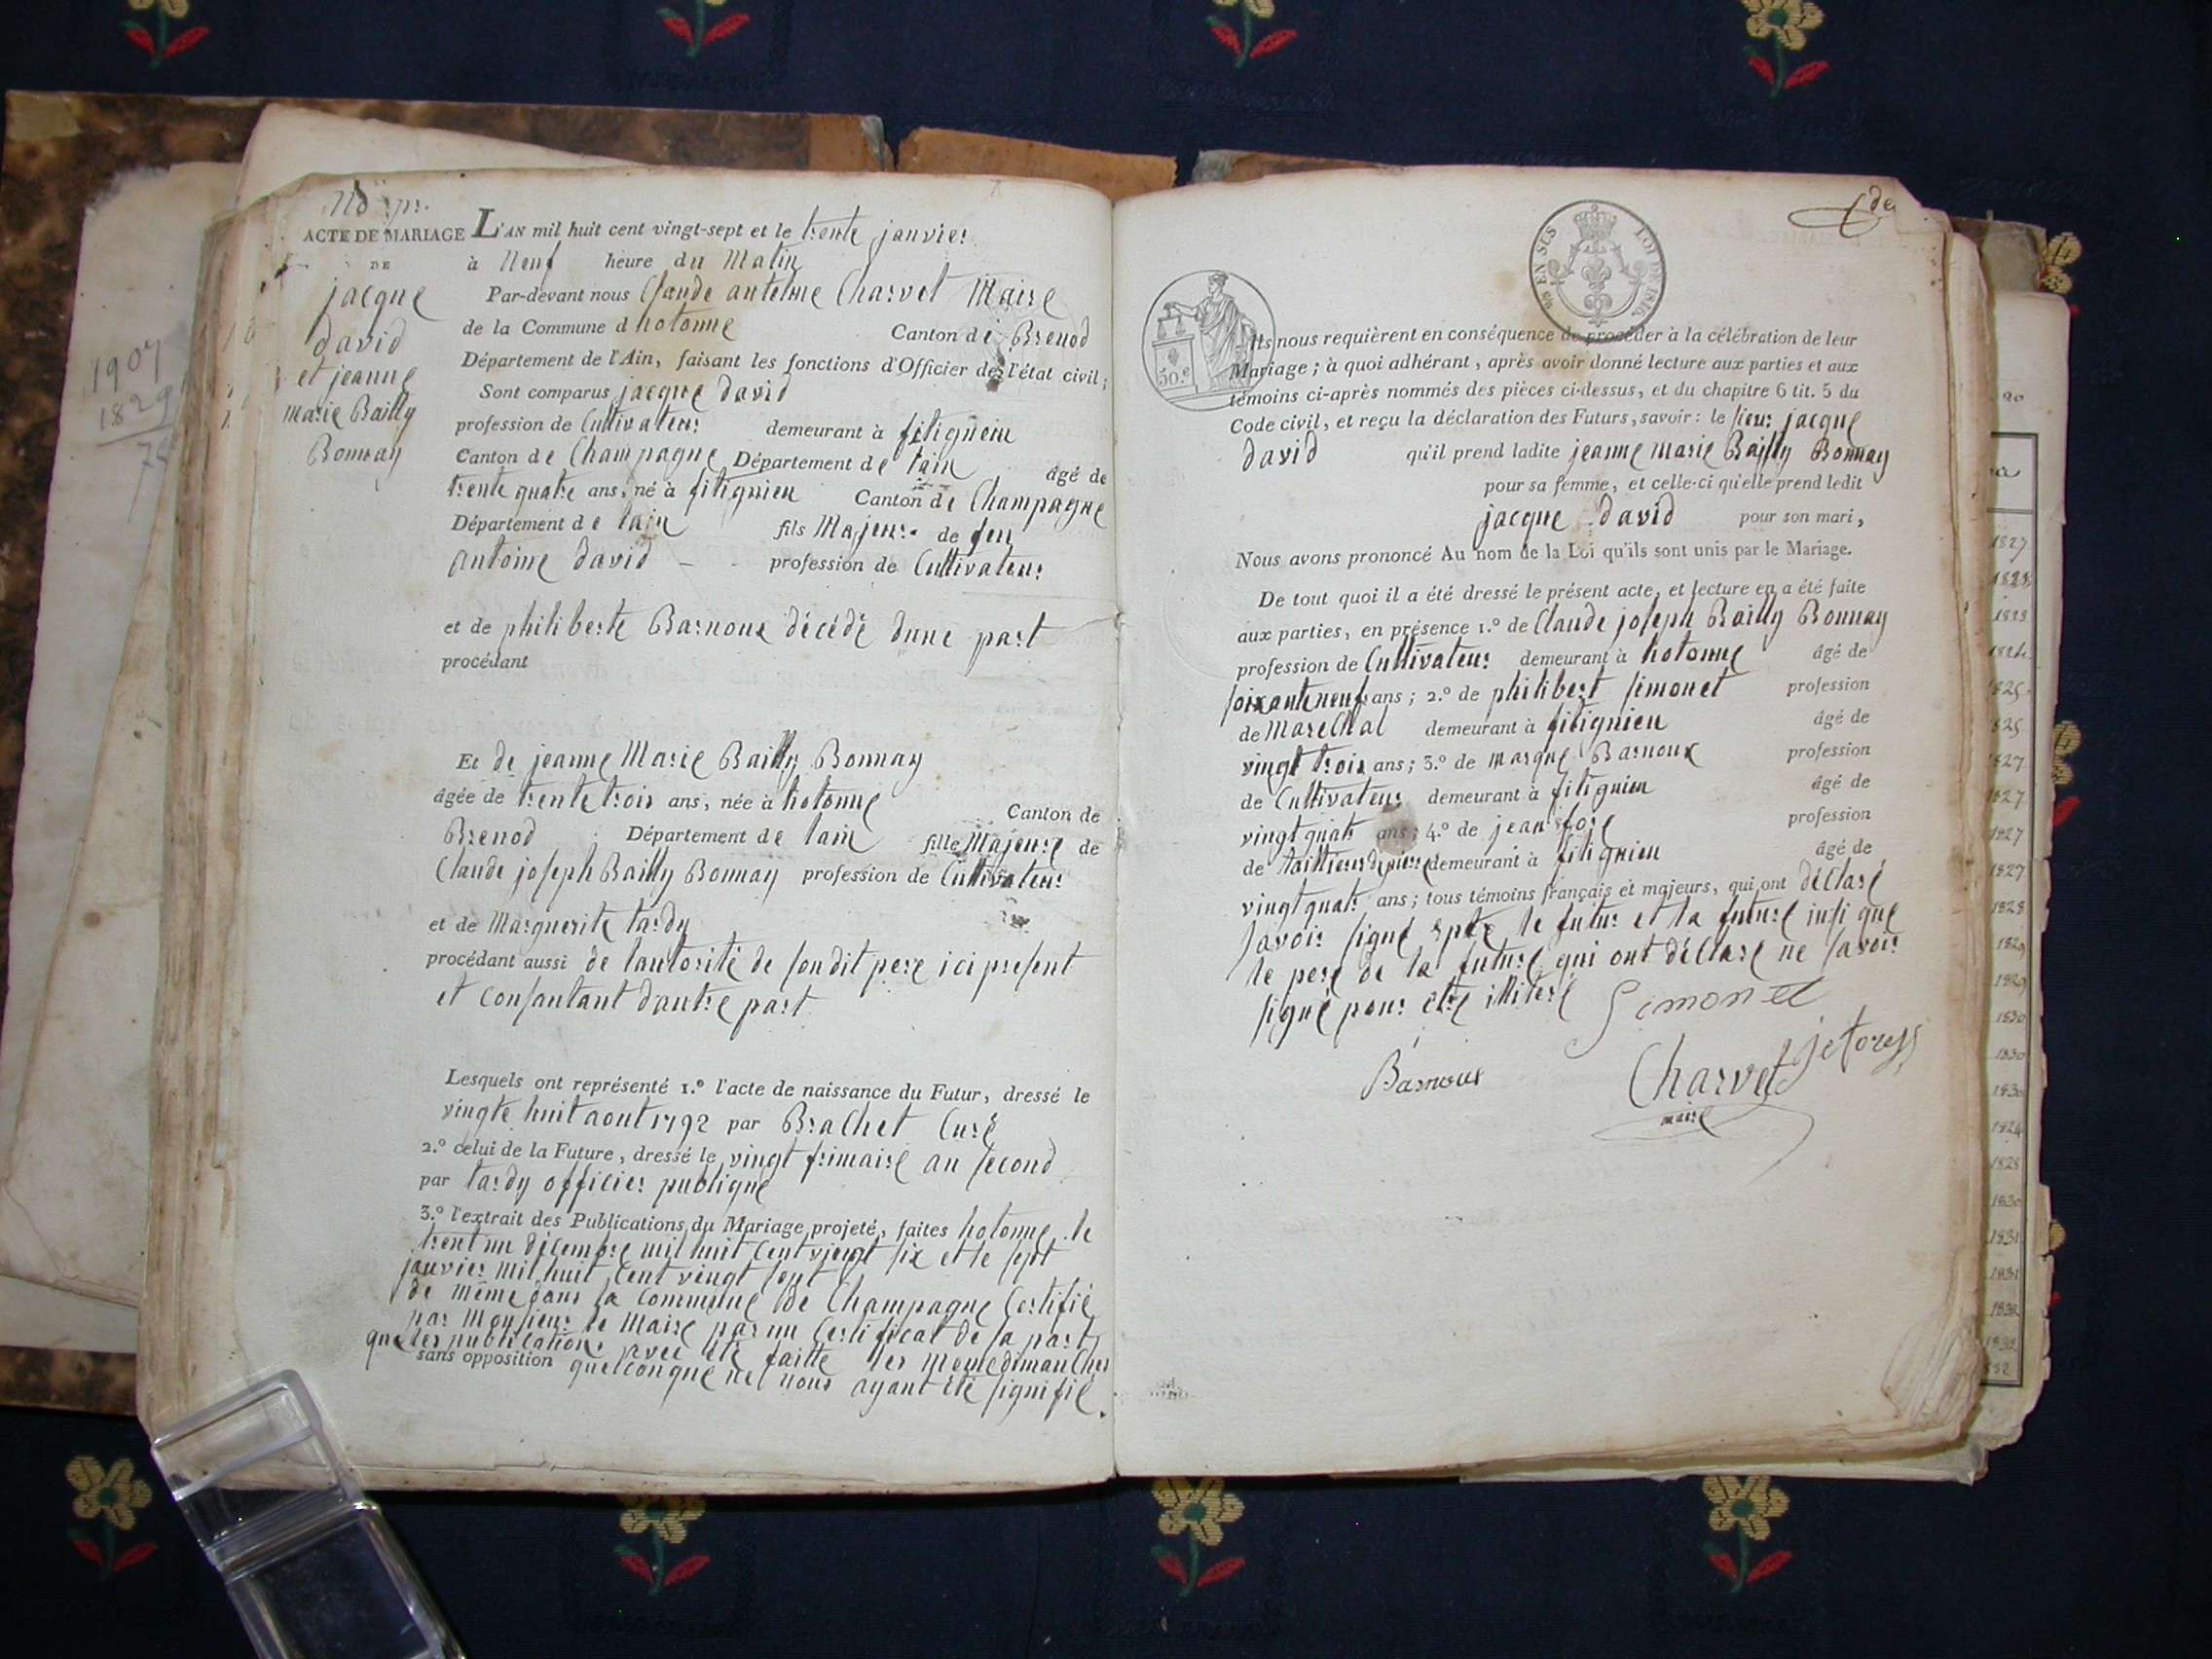 ACTE DE MARIAGE
DE
jacque
david
et jeanne
Marie Bailly
Bonnay
L'AN mil huit cent vingt-sept et le trente janvier
à Neuf heure du Matin
Par-devant nous Claude antelme Charvet Maire
de la Commune d hotonne Canton de Brenod
Département de l'Ain, faisant les fonctions d'Officier de l'état civil;
Sont comparus jacque david
profession de Cultivateur demeurant à fitignieu
Canton de Champagne Département de lain âgé de
trente quatre ans, né à fitignieu Canton de Champagne
Département de lain fils Majeur de feu
antoine david profession de Cultivateur
et de philiberte Barnoux décédé dune part
procédant
Et de jeanne Marie Bailly Bonnay
âgée de trente trois ans, née à hotonne Canton de
Brenod Département de lain fille Majeure de
Claude joseph Bailly Bonnay profession de Cultivateur
et de Marguerite tardy
procédant aussi de lautorité de son dit pere ici present
et consantant dautre part
Lesquels ont représenté 1.º l'acte de naissance du Futur, dressé le
vingte huit aout 1792 par Brachet Curé
2.º celui de la Future, dressé le vingt frimaire an second
par tardy officier publique
3.º l'extrait des Publications du Mariage projeté, faites hotonne le
trent un décembre mil huit cent vingt six et le sept
janvier mil huit cent vingt sept
de même dans la commune de Champagne Certifié
par Monsieur le Maire par un Certificat de sa part
que les publications avec été faitte les meme dimanches
sans opposition quelconque ne nous ayant été signifié.
EN SUS
LOI DE 1816
50.c
Ils nous requièrent en conséquence de procéder à la célébration de leur
Mariage; à quoi adhérant, après avoir donné lecture aux parties et aux
témoins ci-après nommés des pièces ci-dessus, et du chapitre 6 tit. 5 du
Code civil, et reçu la déclaration des Futurs, savoir: le sieur jacque
david qu'il prend ladite jeanne marie Bailly Bonnay
pour sa femme, et celle-ci qu'elle prend ledit
jacque david pour son mari,
Nous avons prononcé Au nom de la Loi qu'ils sont unis par le Mariage.
De tout quoi il a été dressé le présent acte, et lecture en a été faite
aux parties, en présence 1.º de Claude joseph Bailly Bonnay
profession de Cultivateur demeurant à hotonne âgé de
soixante neuf ans; 2.º de philibert simonet profession
de Marechal demeurant à fitignieu âgé de
vingt trois ans; 3.º de marque Barnoux profession
de Cultivateur demeurant à fitignieu âgé de
vingt quatr ans; 4.º de jean profession
de taillieur de pierre demeurant à fitignieu âgé de
vingt quatr ans; tous témoins français et majeurs, qui ont déclaré
savoir signé le futur et la future insi que
le pere de la future qui ont déclaré ne savoir
signé pour etre illiteré Simonet
Barnoux
Charvet
maire
1907
1829
1827
1828
1827
1827
1827
1827
1828
1829
1829
1830
1830
1830
1824
1828
1830
1831
1831
1832
1832